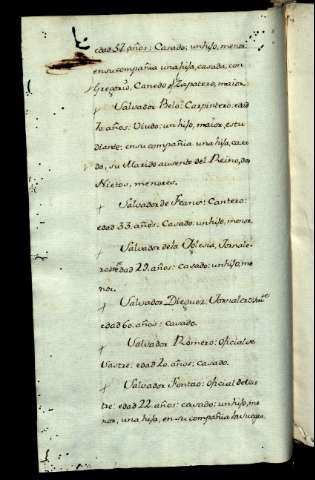 edad 52 años: Casado: un hijo, menor:
en su compañia una hija, casada, con
Gregorio, Canedo Zapatero, maior,
+ Salvador Belo: Carpintero: edad
70 años: Viudo: un hijo, maior, estu
diante: en su compañia una hija, casa
da, su Marido ausente del Reino, dos
Nietos, menores.
+ Salvador de : Cantero:
edad 33 años: Casado: un hijo, menor
+ Salvador de la Yglesia, Jornale
ro edad 29 años: casado: un hijo, me
nor.
+ Salvador Dieguez: Jornalero
edad 60 años: casado.
+ Salvador Romero: oficial de
Sastre: edad 20 años: casado.
+ Salvador Fontao: oficial de Sas
tre: edad 22 años: casado: un hijo, me
nor, una hija, en su compañia la suegra